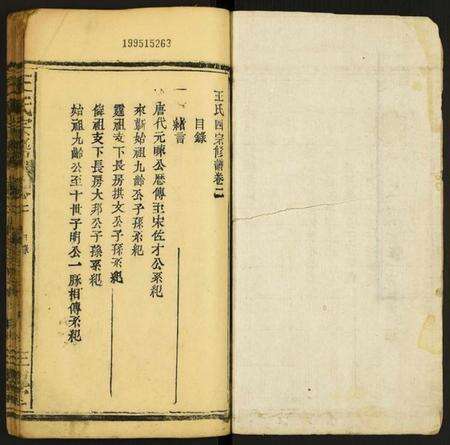 199515263
王氏四宗修譜卷二
目錄
一 緒言
唐代元㬢公歷傳至宋佐才公系紀
來蘄始祖九齡公子孫系紀
霆祖支下長房拱文公子孫系紀
偉祖支下長房大邦公子孫系紀
始祖九齡公至十世子明公一脉相傳系紀